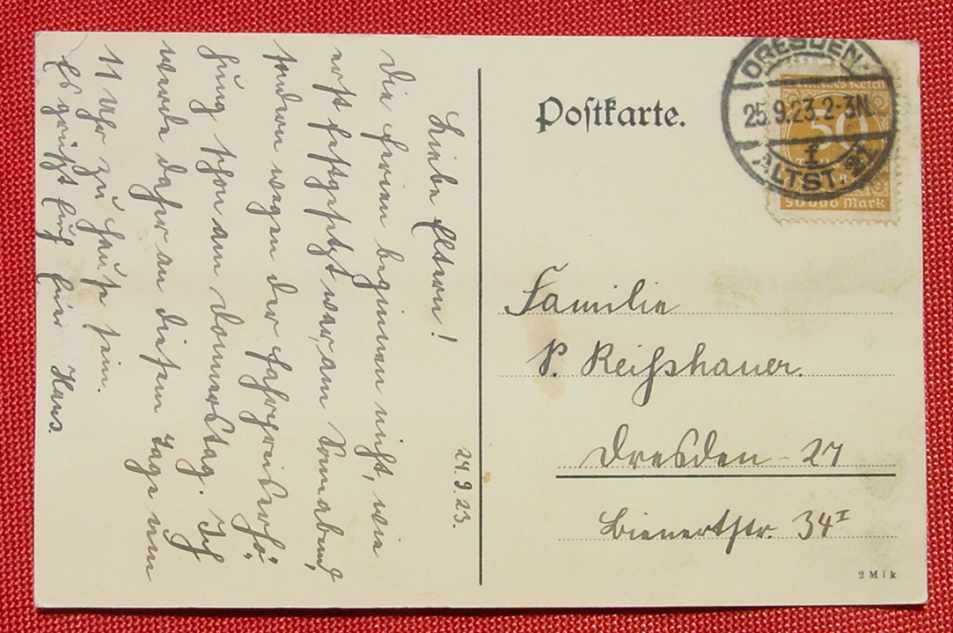 24.9.23.
Liebe Eltern!
Die Ferien beginnen nicht, wie
erst festgesetzt war, am Sonnabend,
sondern wegen der Fahrpreiserhö-
hung schon am Donnerstag. Ich
werde daher an diesem Tage um
11 Uhr zu Hause sein.
Es grüßt Euch Euer Hans.
Postkarte.
DRESDEN-
25.9.23.2-3N.
f
ALTST. 24
50
50000 Mark
Familie
P. Reißhauer.
Dresden - 27
Bienertstr. 34 I
2 M i k